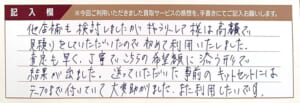 記入欄 ※今回ご利用いただきました買取サービスの感想を、手書きにてご記入お願いします。
他店舗も検討しましたが 様は高額で
見積りをしていただいたので初めて利用いたしました。
査定も早く、丁寧でこちらの希望額に添う形で
結果が出ました。送っていただいた事前のキットセットには
テープまで付いていて大変助かりました。また利用したいです。